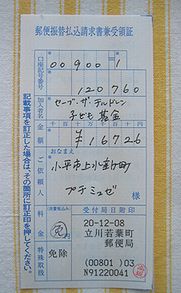 郵便振替払込請求書兼受領証
口座記号番号
00900 1
120760
加入者名
セーブ・ザ・チルドレン
子ども基金
金額
千 百 十 万 千 百 十 円
¥16726
ご依頼人
おなまえ
小平市上水本町
プチミュゼ
様
料金
(消費税込み)
免
特殊取扱
免除
受付局日附印
20-12-08
立川若葉町
郵便局
(00801) 03
N91220041
記載事項を訂正した場合は、その箇所に訂正印を押してください。